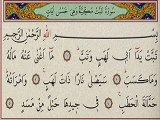 سُورَةُ تَبَّتْ مَكِّيَّةٌ وَهِيَ خَمْسُ آيَاتٍ
بِسْمِ اللهِ الرَّحْمٰنِ الرَّحِيمِ
تَبَّتْ يَدَا أَبِي لَهَبٍ وَتَبَّ مَا أَغْنَى عَنْهُ مَالُهُ
وَمَا كَسَبَ سَيَصْلَى نَارًا ذَاتَ لَهَبٍ وَامْرَأَتُهُ
حَمَّالَةَ الْحَطَبِ فِي جِيدِهَا حَبْلٌ مِنْ مَسَدٍ